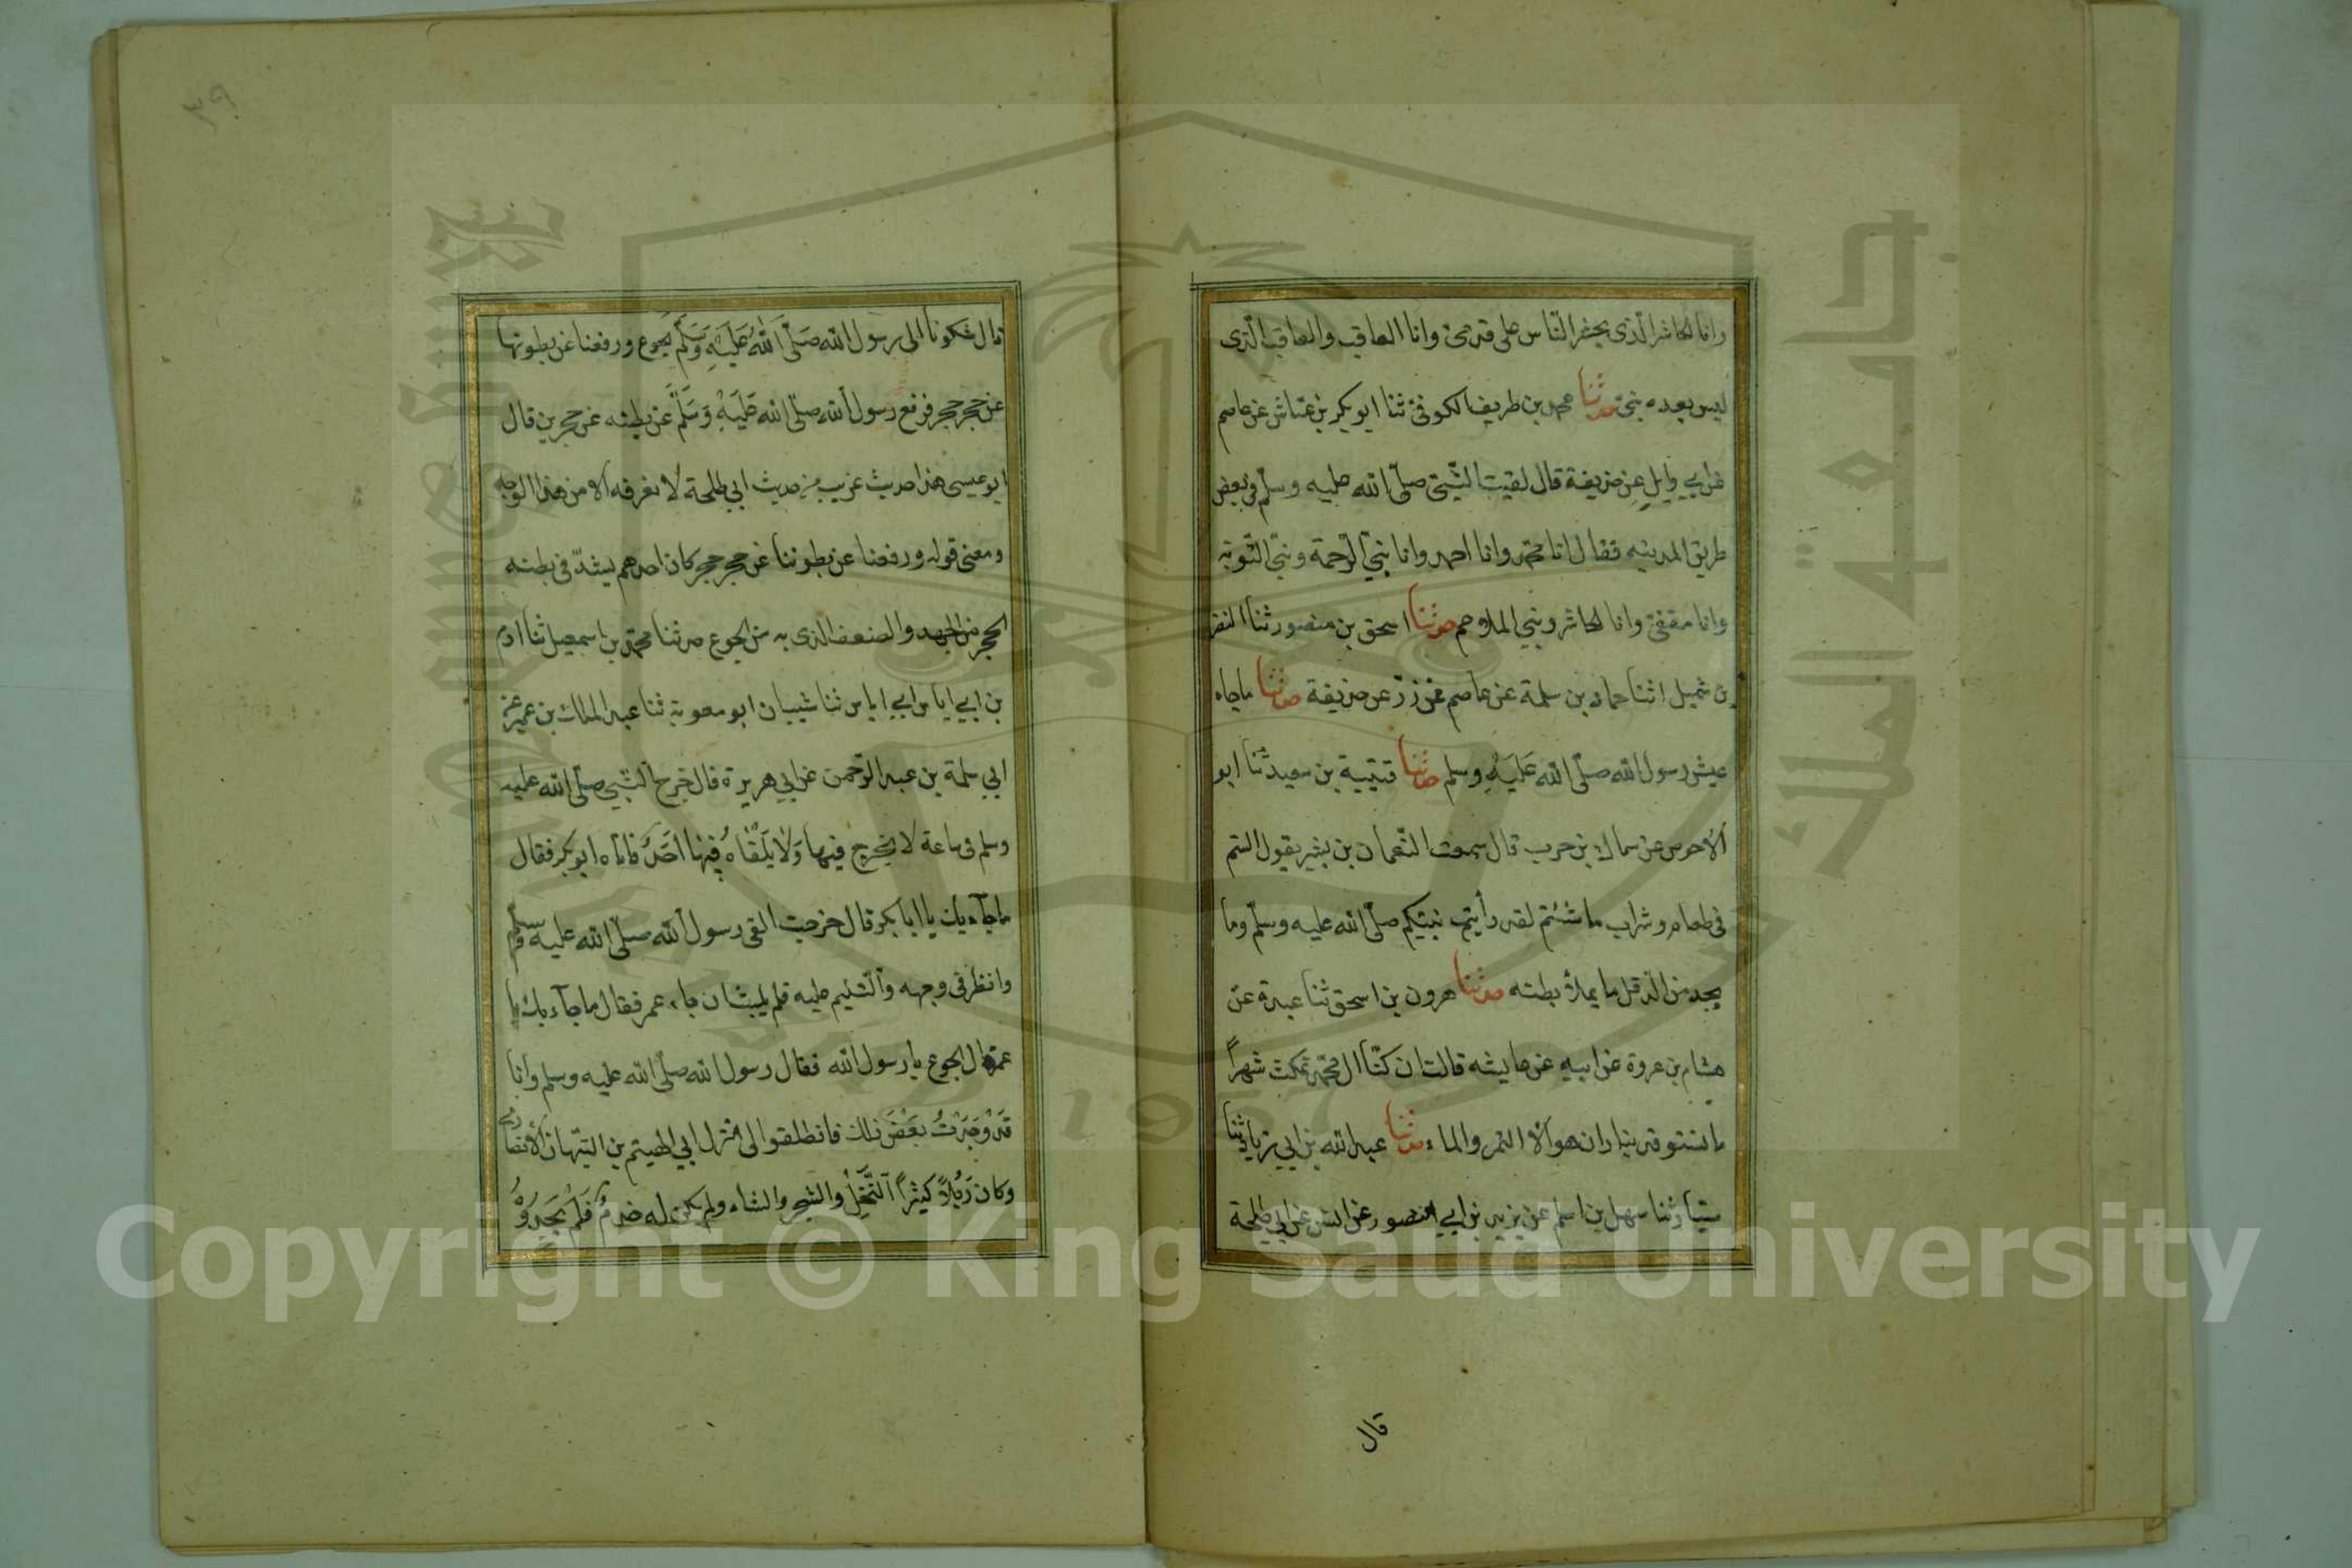 وانا الحاشر الذى يحشر الناس على قدمى وانا العاقب والعاقب الذى
ليس بعده نبى حدثنا محمد بن طريف الكوفى ثنا ابو بكر بن عياش عن عاصم
عن ابي وايل عن حذيفة قال لقيت النبى صلى الله عليه وسلم فى بعض
طريق المدينه فقال انا محمد وانا احمد وانا نبى الرحمة ونبى التوبة
وانا مقفى وانا الحاشر ونبي الملاحم حدثنا اسحق بن منصور ثنا النضر
بن شميل اثنا حماد بن سلمة عن عاصم عن زر عن حذيفة حدثنا ماجاء
عيش رسول الله صلى الله عليه وسلم حدثنا قتيبة بن سعيد ثنا ابو
الاحوص عن سماك بن حرب قال سمعت النعمان بن بشير يقول الستم
فى طعام وشراب ما شئتم لقد رأيت نبيكم صلى الله عليه وسلم وما
يجد من الدقل ما يملأ بطنه حدثنا هرون بن اسحق ثنا عبدة عن
هشام بن عروة عن ابيه عن عايشه قالت ان كنا ال محمد نمكث شهراً
ما نستوقد بنار ان هو الا التمر والماء حدثنا عبد الله بن ابي زياد ثنا
سيار ثنا سهل بن اسلم عن يزيد بن ابي منصور عن انس عن ابي طلحة
قال
قال شكونا الى رسول الله صلى الله عليه وسلم الجوع ورفعنا عن بطونها
عن حجر حجر فرفع رسول الله صلى الله عليه وسلم عن بطنه عن حجرين قال
ابو عيسى هذا حديث غريب من حديث ابي طلحة لا نعرفه الا من هذا الوجه
ومعنى قوله ورفعنا عن بطوننا عن حجر حجر كان احدهم يشد فى بطنه
الحجر من الجهد والضعف الذى به من الجوع حدثنا محمد بن اسمعيل ثنا ادم
بن ابي اياس ابي اياس ثنا شيبان ابو معوية ثنا عبد الملك بن عمير عن
ابي سلمة بن عبد الرحمن عن ابي هريرة قال خرج النبي صلى الله عليه
وسلم فى ساعة لا يخرج فيها ولا يلقاه فيها احد فاتاه ابو بكر فقال
ما جآء بك يا ابا بكر قال خرجت القى رسول الله صلى الله عليه وسلم
وانظر فى وجهه والتسليم عليه فلم يلبث ان جاء عمر فقال ما جآء بك يا
عمر قال الجوع يا رسول الله فقال رسول الله صلى الله عليه وسلم وانا
قد وجدت بعض ذلك فانطلقوا الى منزل ابي الهيتم بن التيهان الانصارى
وكان رجلاً كثيراً النخل والشجر والشاء ولم يكن له خدم فلم يجدوه
Copyright © King Saud University
1957